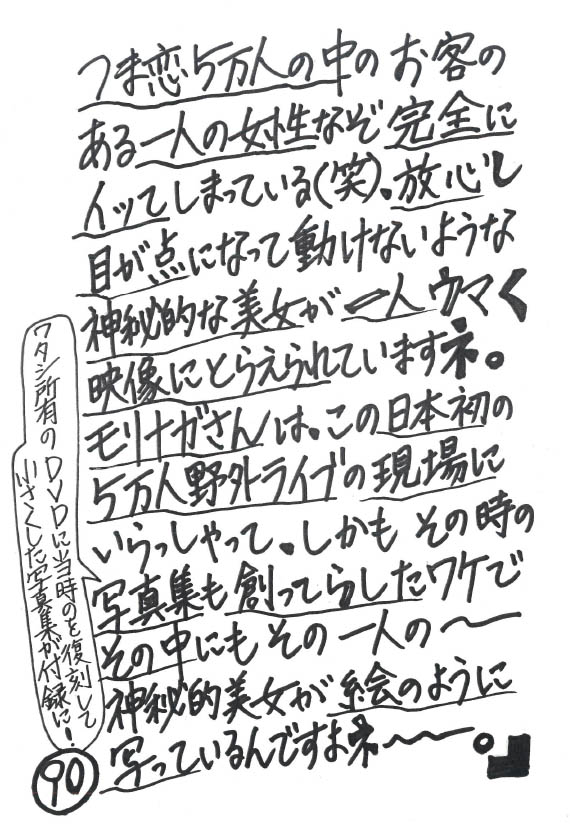 つま恋5万人の中のお客の
ある一人の女性なぞ完全に
イッてしまっている(笑)。放心し
目が点になって動けないような
神秘的な美女が一人ウマく
映像にとらえられていますネ。
モリナガさんは、この日本初の
5万人野外ライブの現場に
いらっしゃって、しかもその時の
写真集も創ってらしたワケで
その中にもその一人の〜
神秘的美女が絵のように
写っているんですよネ〜〜。
ワタシ所有のDVDに当時のを復刻して
小さくした写真集が付録に!
90